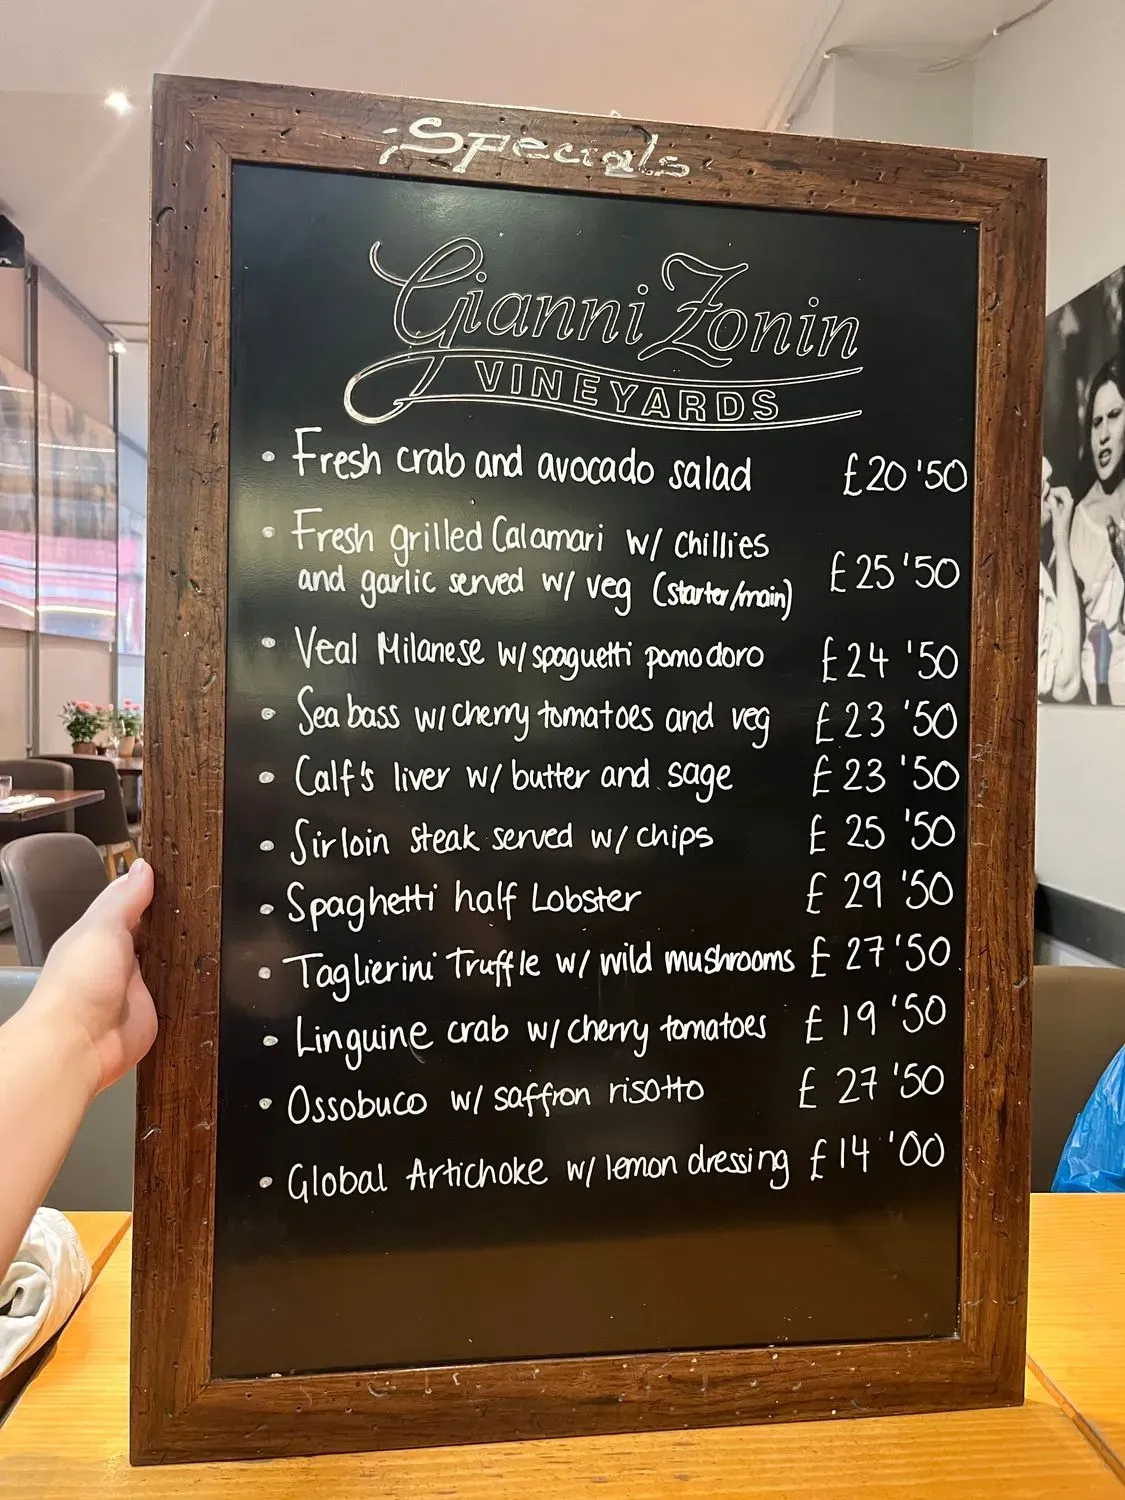 Specials
Gianni Zonin
VINEYARDS
• Fresh crab and avocado salad £20'50
• Fresh grilled Calamari w/ chillies
and garlic served w/ veg (starter/main) £25'50
• Veal Milanese w/ spaguetti pomodoro £24'50
• Sea bass w/ cherry tomatoes and veg £23'50
• Calf's liver w/ butter and sage £23'50
• Sirloin steak served w/ chips £25'50
• Spaghetti half Lobster £29'50
• Taglierini Truffle w/ wild mushrooms £27'50
• Linguine crab w/ cherry tomatoes £19'50
• Ossobuco w/ saffron risotto £27'50
• Global Artichoke w/ lemon dressing £14'00